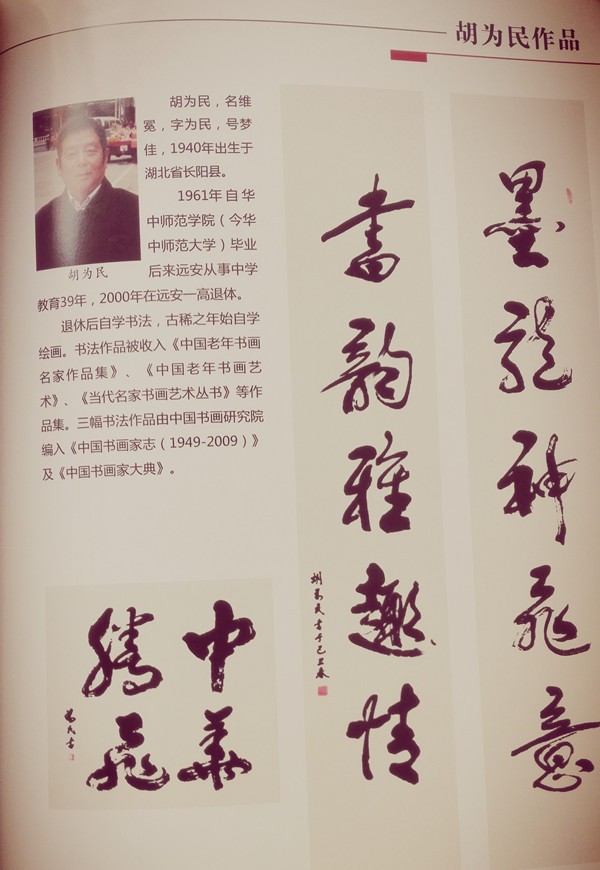 胡为民作品
胡为民，名维
冕，字为民，号梦
佳，1940年出生于
湖北省长阳县。
1961年自华
中师范学院（今华
中师范大学）毕业
后来远安从事中学
教育39年，2000年在远安一高退体。
退休后自学书法，古稀之年始自学
绘画。书法作品被收入《中国老年书画
名家作品集》、《中国老年书画艺
术》、《当代名家书画艺术丛书》等作
品集。三幅书法作品由中国书画研究院
编入《中国书画家志（1949-2009）》
及《中国书画家大典》。
胡为民
墨龙神飞意
书韵雅趣情
胡为民书于己丑春
中华
腾飞
为民书